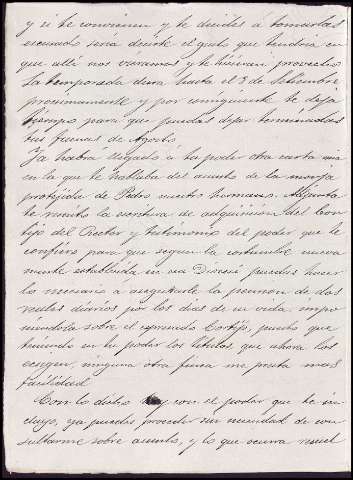 y si te convienen y te decides á tomarlas
escusado seria decirte el gusto que tendria en
que allí nos vieramos y te hicieran provecho.
La temporada dura hasta el 8 de Setiembre
proximamente y por consiguiente te deja
tiempo para que puedas dejar terminadas
tus faenas de Agosto.
Ya habrá llegado á tu poder otra carta mia
en la que te hablaba del asunto de la monja
protejida de Pedro nuestro hermano. Adjunta
te remito la escritura de adquisicion del Cor
tijo del Rector y testimonio del poder que te
confiero para que segun la costumbre nueva
mente establecida en esa Diócesi puedas hacer
lo necesario á asegurarle la pension de dos
reales diarios por los dias de su vida, impo
niendola sobre el espresado Cortijo, puesto que
teniendo en tu poder los titulos que ahora los
exigen, ninguna otra finca me presta mas
facilidad.
Con lo dicho y con el poder que te in
cluyo, ya puedes proceder sin necesidad de con
sultarme sobre el asunto, y lo que ocurra